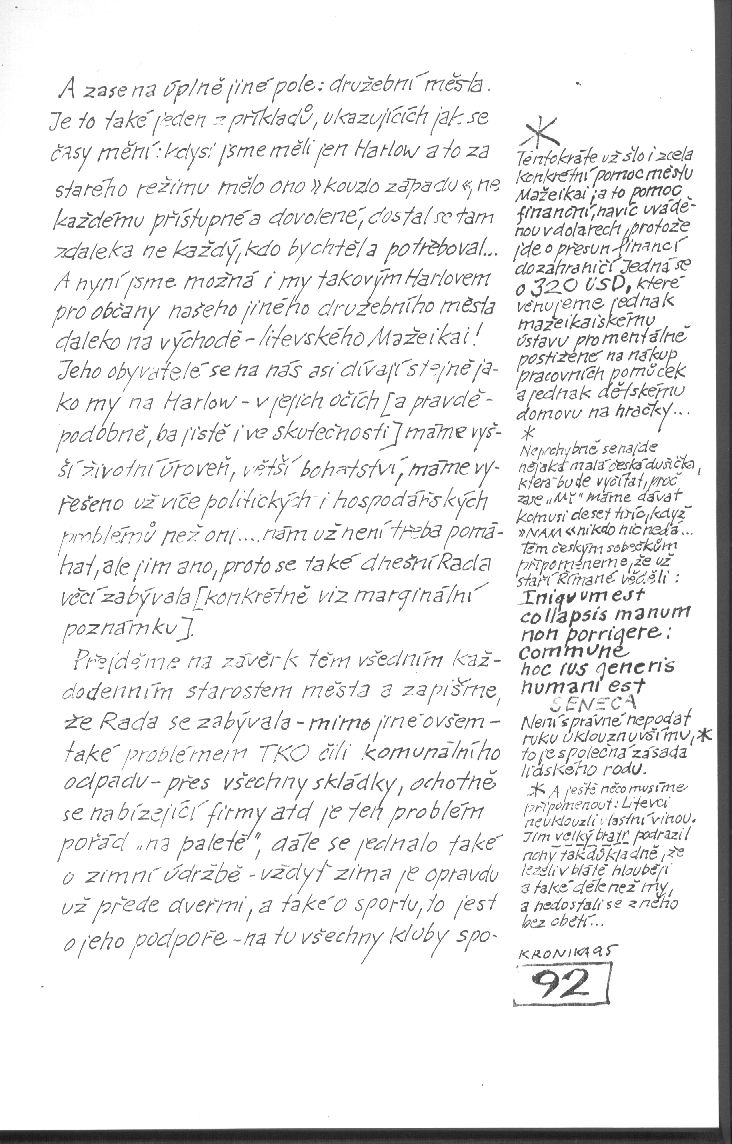 A zase na úplně jiné pole: družební města.
Je to také jeden z příkladů, ukazujících jak se
časy mění: kdysi jsme měli jen Harlow a to za
starého režimu mělo ono »kouzlo západu«, ne
každému přístupné a dovolené, dostal se tam
zdaleka ne každý, kdo by chtěl a potřeboval...
A nyní jsme možná i my takovým Harlovem
pro občany našeho jiného družebního města
daleko na východě - litevského Mažeikai!
Jeho obyvatelé se na nás asi dívají stejně ja-
ko my na Harlow - v jejich očích [a pravdě-
podobně, ba jistě i ve skutečnosti] máme vyš-
ší životní úroveň, větší bohatství, máme vy-
řešeno už více politických i hospodářských
problémů než oni.... nám už není třeba pomá-
hat, ale jim ano, proto se také dnešní Rada
věcí zabývala [konkrétně viz marginální
poznámku].
Přejděme na závěr k těm všedním kaž-
dodenním starostem města a zapišme,
že Rada se zabývala - mimo jiné ovšem -
také problémem TKO čili komunálního
odpadu - přes všechny skládky, ochotně
se nabízející firmy atd je ten problém
pořád „na paletě", dále se jednalo také
o zimní údržbě - vždyť zima je opravdu
už přede dveřmi, a také o sportu, to jest
o jeho podpoře - na tu všechny kluby spo-
*
Tentokráte už šlo i zcela
konkrétní pomoc městu
Mažeikai, a to pomoc
finanční, navíc uvádě-
nou v dolarech, protože
jde o přesun financí
do zahraničí. Jedná se
o 320 USD, které
věnujeme jednak
mažeikaiskému
ústavu pro mentálně
postižené na nákup
pracovních pomůcek
a jednak dětskému
domovu na hračky...
*
Nepochybně se najde
nějaká malá česká dušička,
která bude vyčítat, proč
zase „MY" máme dávat
komusi deset tisíc, když
»NÁM« nikdo nic nedá...
Těm českým sobečkům
připomeneme, že už
staří Římané věděli:
Iniquum est
collapsis manum
non porrigere:
commune
hoc ius generis
humani est
SENECA
Není správné nepodat
ruku uklouznuvšímu, *
to je společná zásada
lidského rodu.
* A ještě něco musíme
připomenout: Litevci
neuklouzli vlastní vinou.
Jim velký bratr podrazil
nohy tak důkladně, že
leželi v blátě hlouběji
a také déle než my,
a nedostali se z něho
bez obětí...
KRONIKA 95
92